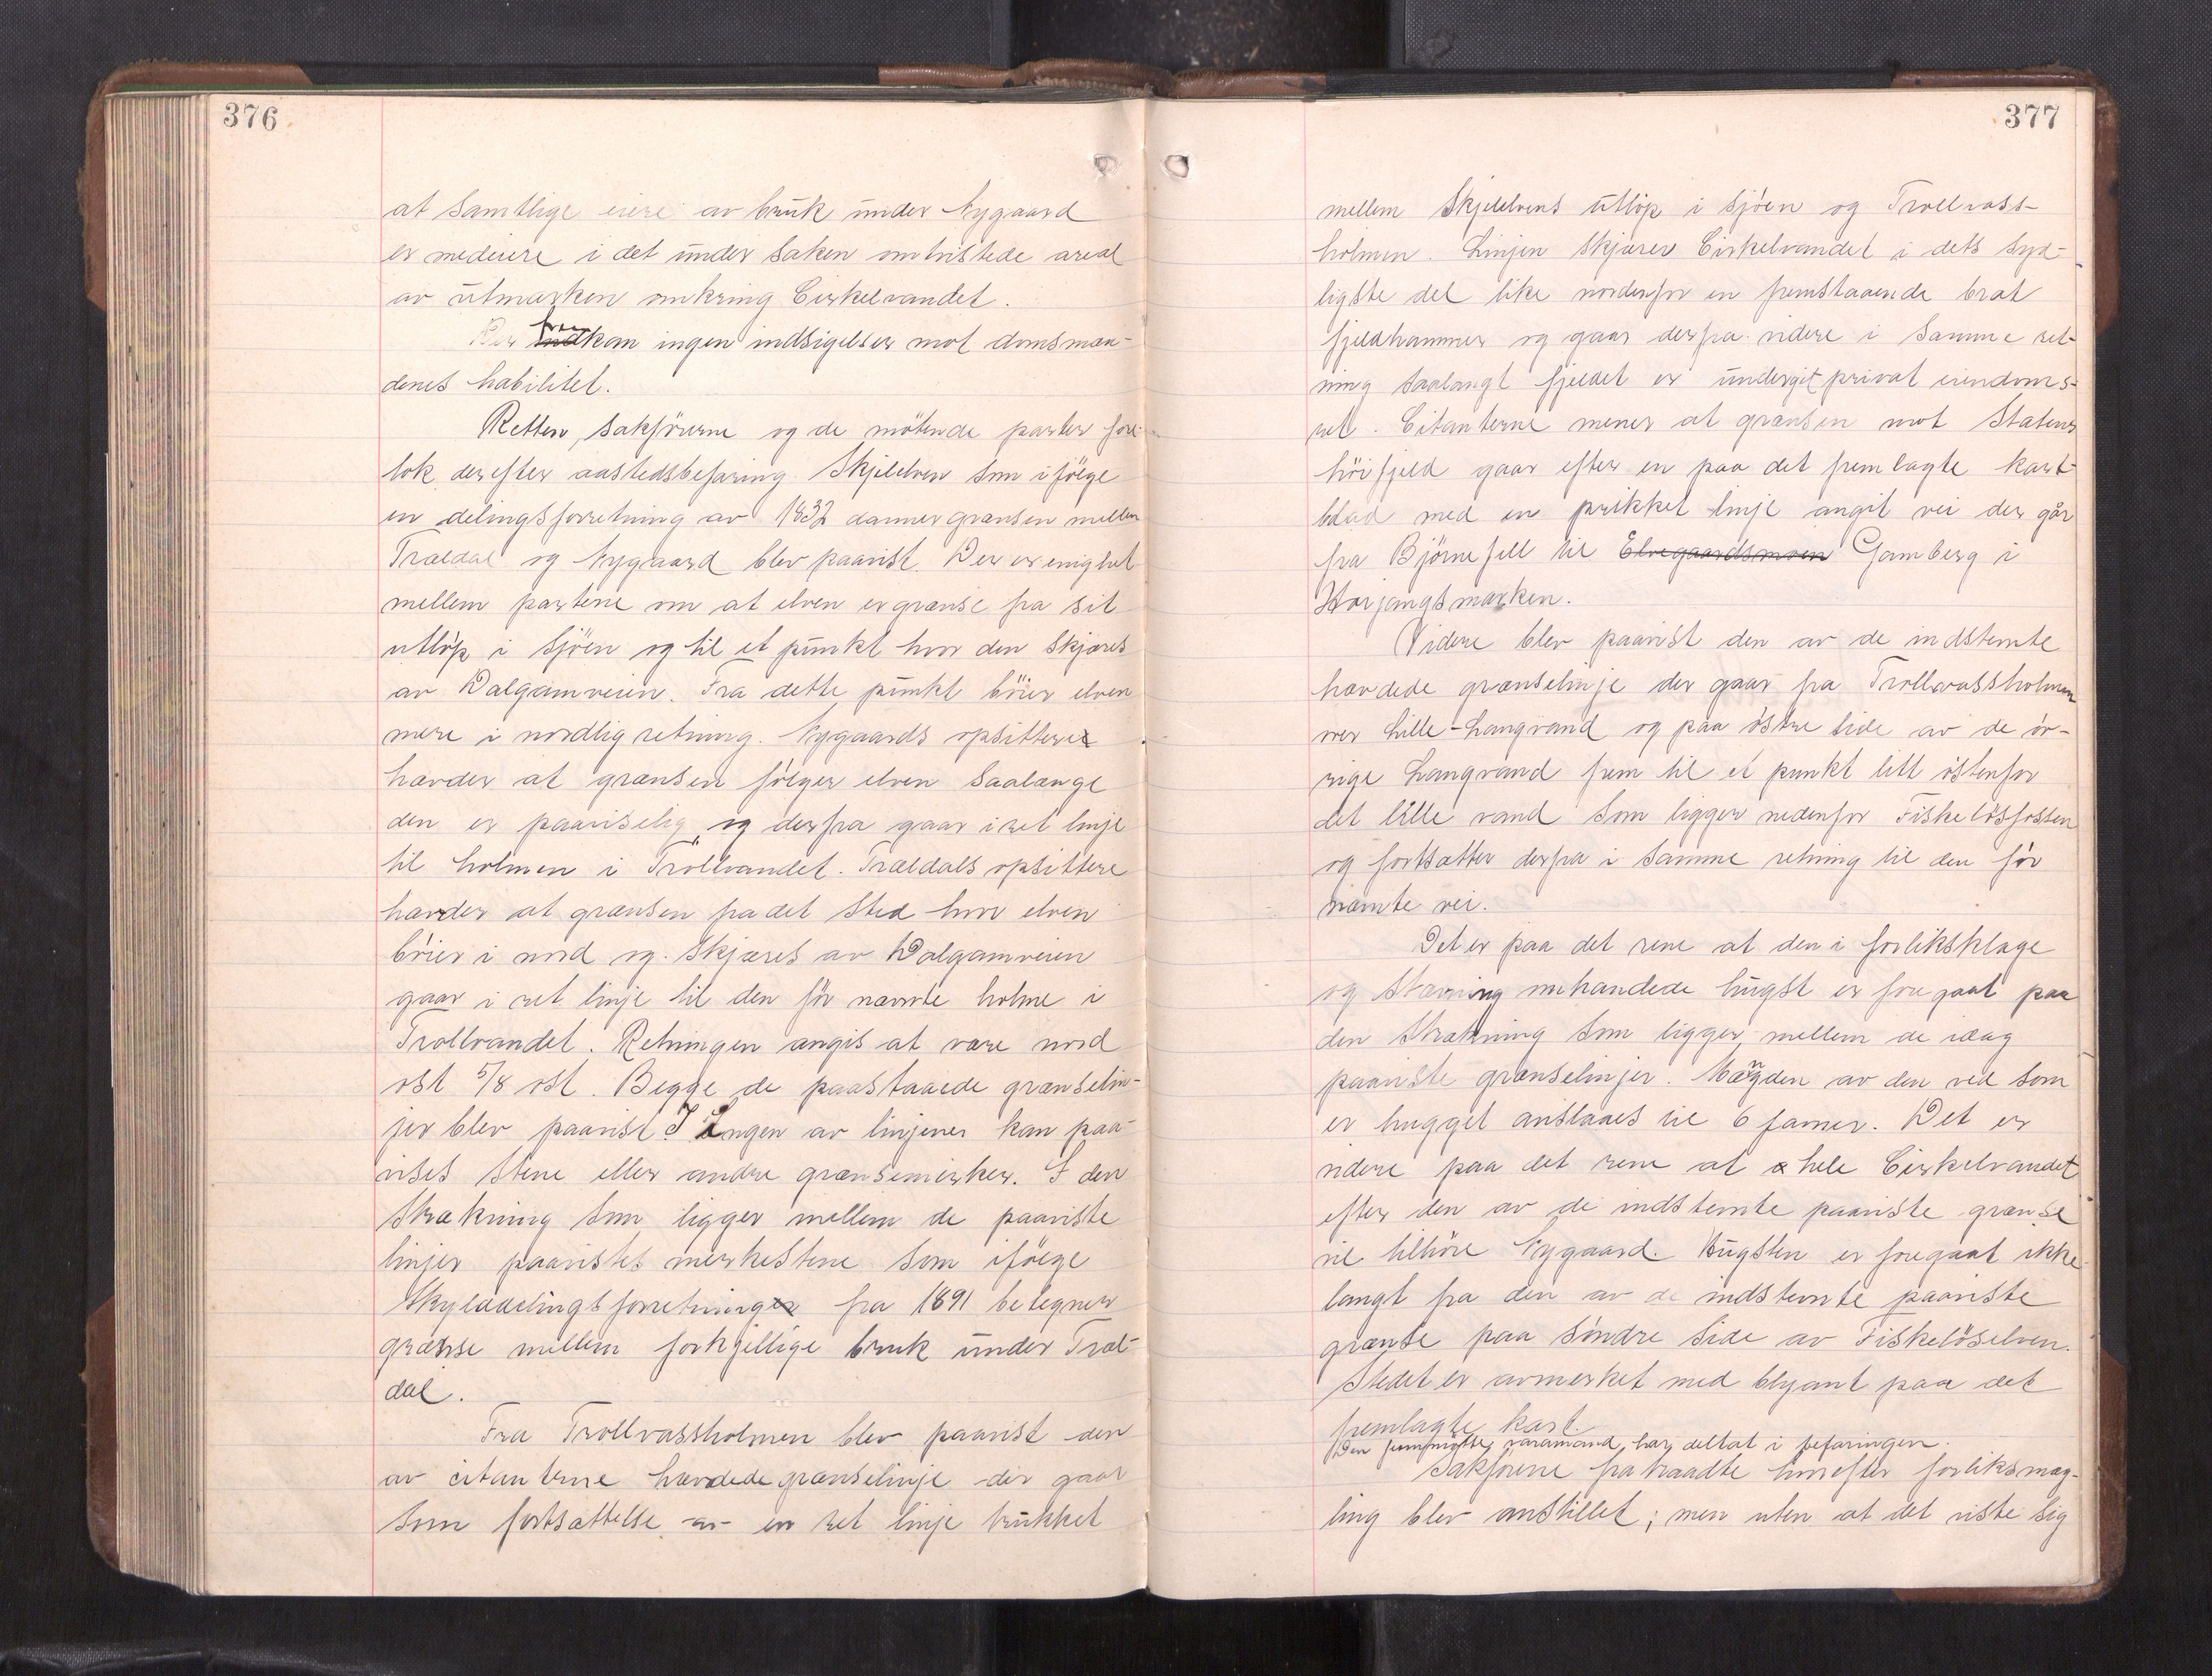 376
at samtlige eiere av bruk under Nygaard
er medeiere i det under saken omtvistede areal
av utmarken omkring Cirkelvandet.
Der fremkom ingen indsigelser mot domsmæn-
denes habilitet.
Retten, sakførerne og de møtende parter fore-
tok derefter aastedsbefaring. Skjelelven som ifølge
en delingsforretning av 1832 danner grænsen mellem
Træeldal og Nygaard blev paavist. Der er enighet
mellem partene om at elven er grænse fra sit
utløp i sjøen og til et punkt hvor den skjæres
av Dalgamveien. Fra dette punkt bøier elven
mere i nordlig retning. Nygaards opsittere
hævder at grænsen følger elven saalænge
den er paaviselig, og derfra gaar i ret linje
til holmen i Trollvandet. Træeldals opsittere
hævder at grænsen fra det sted hvor elven
bøier i nord og skjæres av Dalgamveien
gaar i ret linje til den før nævnte holme i
Trollvandet. Retningen angis at være nord
ost 5/8 ost. Begge de paastaaede grænselin-
jer blev paavist. I Ingen av linjener kan paa-
vises stene eller andre grænsemerker. I den
strækning som ligger mellem de paaviste
linjer paavistes merkestene som ifølge
skylddelingsforretning fra 1891 betegner
grænse mellem forskjellige bruk under Træl-
dal.
Fra Trollvassholmen blev paavist den
av citanterne hævdede grænselinje der gaar
som fortsættelse av en ret linje trukket
377
mellem Skjelelvens utløp i sjøen og Trollvass-
holmen. Linjen skjærer Cirkelvandet i dets syd-
ligste del like nordenfor en fremstaaende brat
fjeldhammer og gaar derfra videre i samme ret-
ning saalangt fjeldet er undergit privat eiendoms-
ret. Citanterne mener at grænsen mot Statens
høifjeld gaar efter en paa det fremlagte kart-
blad med en prikket linje angit vei der går
fra Bjørnefjell til Elvegaardsmoen Gamberg i
Herjangsmarken.
Videre blev paavist den av de indstevnte
hævdede grænselinje der gaar fra Trollvassholmen
over Lille-Langvand og paa østre side av de øv-
rige Langvand frem til et punkt litt østenfor
det lille vand som ligger nedenfor Fiskeløsfossen
og fortsætter derfra i samme retning til den før
nævnte vei.
Det er paa det rene at den i forliksklage
og stævning omhandlede hugst er foregaat paa
den strækning som ligger mellem de idag
paaviste grænselinjer. Mængden av den ved som
er hugget anslaaes til 6 famner. Det er
videre paa det rene at hele Cirkelvandet
efter den av de indstevnte paaviste grænse
vil tilhøre Nygaard. Hugsten er foregaat ikke
langt fra den av de indstevnte paaviste
grænse paa søndre side av Fiskeløselven.
Stedet er avmerket med blyant paa det
fremlagte kart.
Den fremmøtte varamand har deltat i befaringen.
Sakførerne fratraadte hvorefter forliksmæg-
ling blev anstillet; men uten at det viste sig